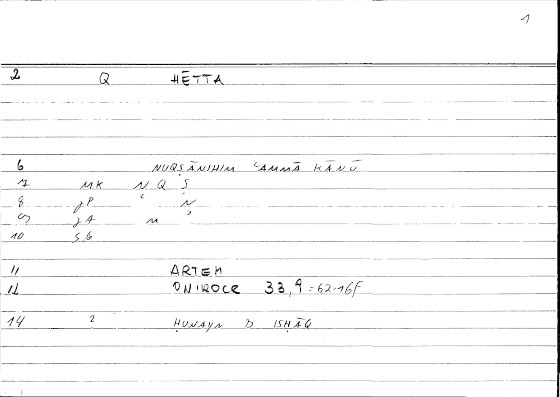 1
2 Q HĒTTA
6 NUQṢĀNIHIM ʿAMMĀ KĀNŪ
7 MK N Q Ṣ
8 gP N
9 gA M
10 SG
11 ARTEM
12 ONIROCR 33,9 = 62.16F
14 2 ḤUNAYN B ISḤĀQ